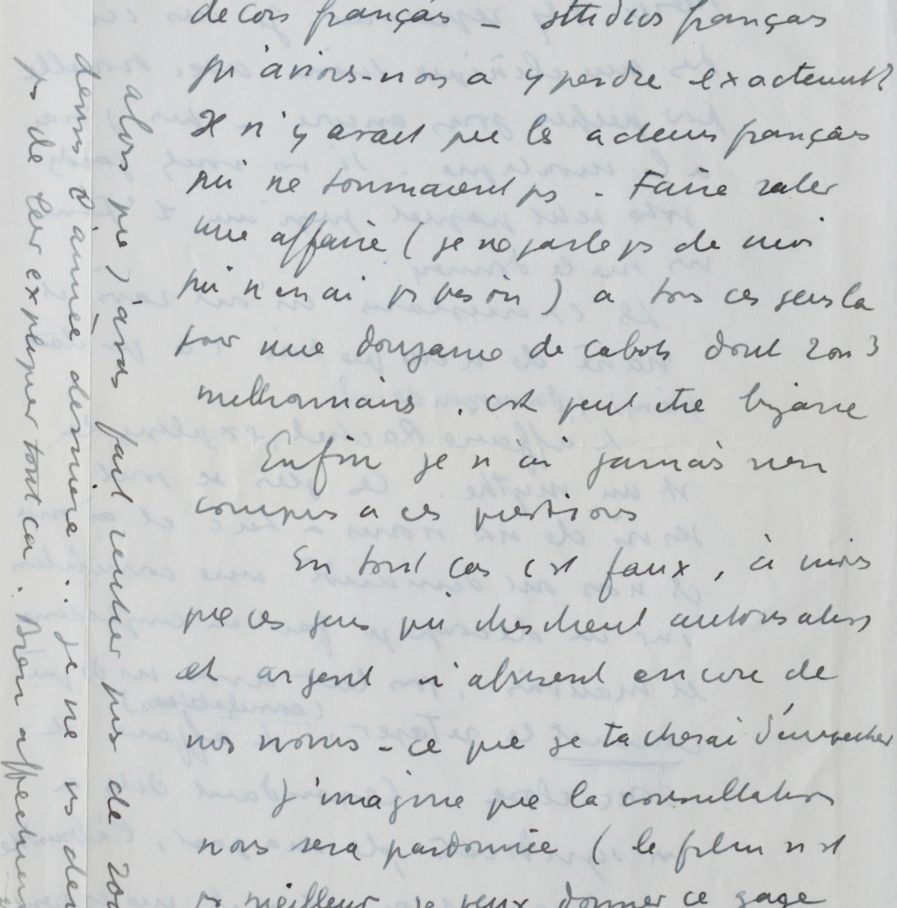 decors français – studios français
qu'avions-nous a y perdre exactement?
Il n'y avait que les acteurs français
qui ne tournaient ps – Faire rater
une affaire (je ne parle ps de moi
qui n'en ai ps besoin) a tous ces gens la
pour une douzaine de cabots dont 2 ou 3
millionnaires . c'est peut etre bizarre
Enfin je n'ai jamais rien
compris a ces questions
En tout cas c'est faux , à moins
que ces gens qui cherchent autorisations
et argent n'abusent encore de
nos noms – ce que je tacherai d'empecher
J'imagine que la consultation
nous sera pardonnée (le film n'est
ps meilleur je veux donner ce gage
alors que) avos fait rentrer plus de 200
l'année derniere . je ne vs
ps de leur expliquer tout ca . Bien